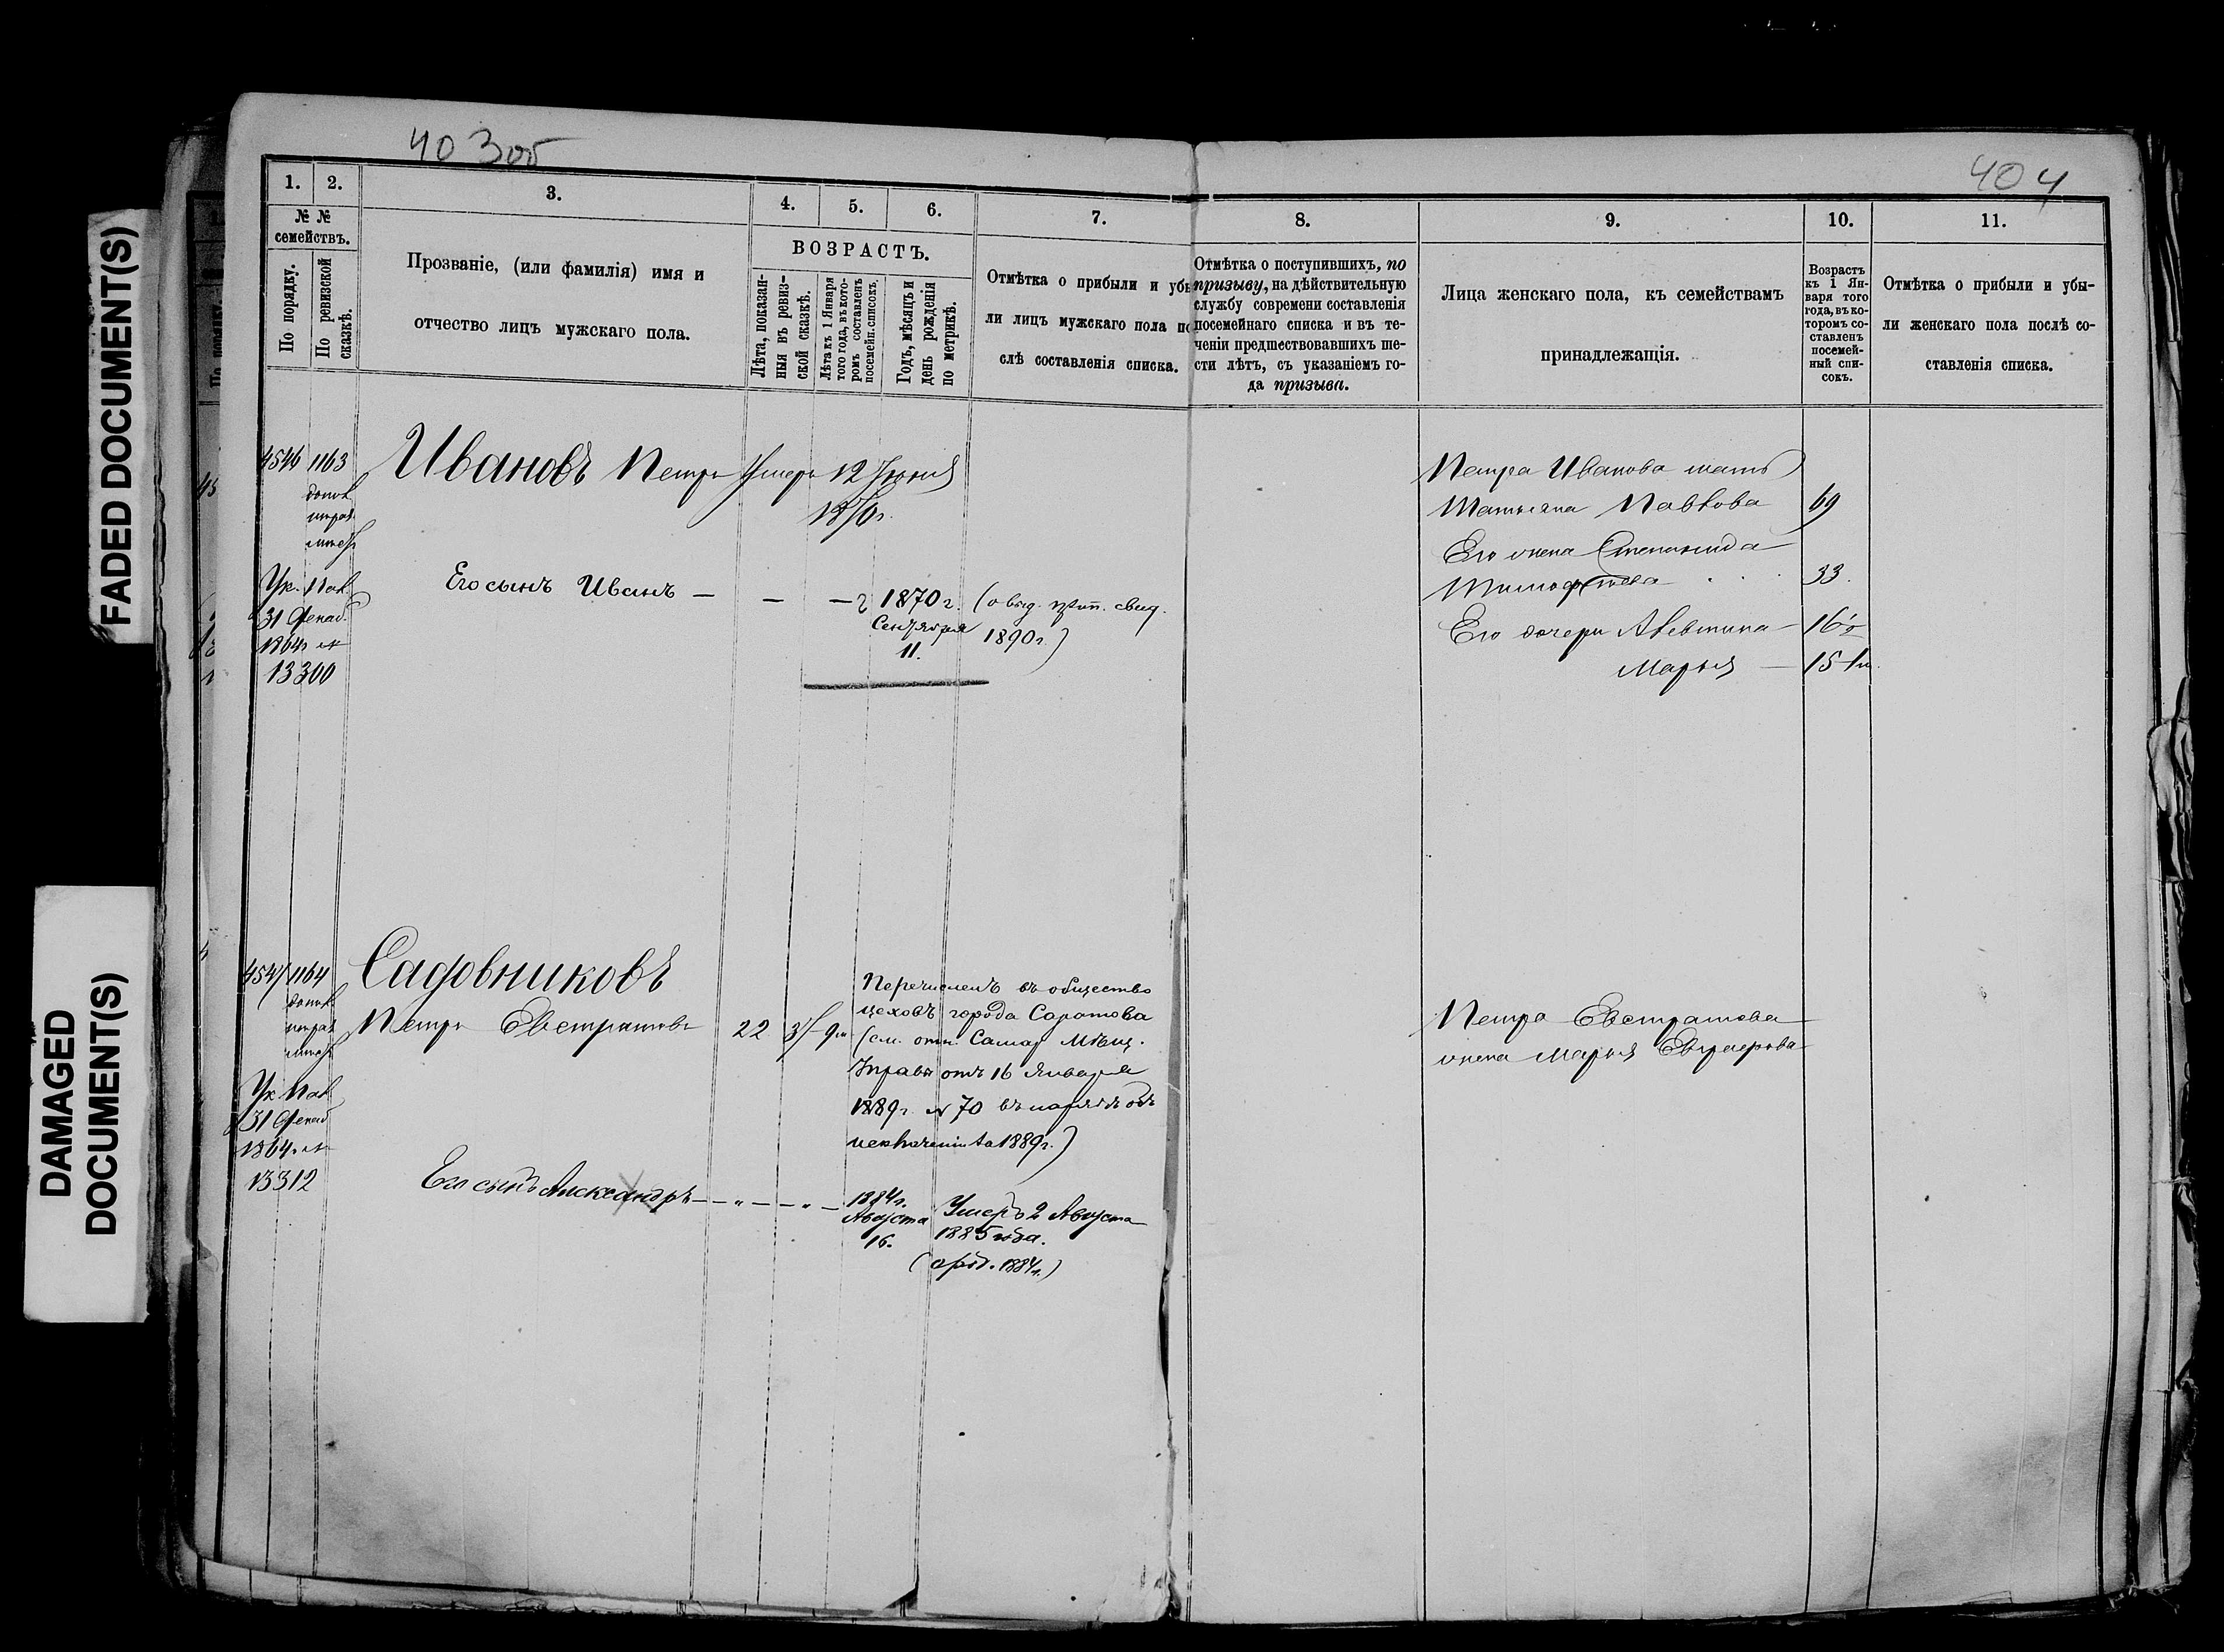 FADED DOCUMENT(S)
DAMAGED
DOCUMENT(S)
403об
404
1.
2.
3.
4.
5.
6.
7.
8.
9.
10.
11.
№ №
семействъ.
По порядку.
По ревизской
сказкѣ.
Прозваніе, (или фамилія) имя и
отчество лицъ мужскаго пола.
ВОЗРАСТЪ.
Лѣта, показан-
ныя въ ревиз-
ской сказкѣ.
Лѣта къ 1 Января
того года, въ кото-
ромъ составленъ
посемейн. списокъ.
Годъ, мѣсяцъ и
день рожденія
по метрикѣ.
Отмѣтка о прибыли и убы
ли лицъ мужскаго пола по
слѣ составленія списка.
Отмѣтка о поступившихъ, по
призыву, на дѣйствительную
службу современи составленія
посемейнаго списка и въ те-
ченіи предшествовавшихъ ше-
сти лѣтъ, съ указаніемъ го-
да призыва.
Лица женскаго пола, къ семействамъ
принадлежащія.
Возрастъ
къ 1 Ян-
варя того
года, въ ко-
торомъ со-
ставленъ
посемей-
ный спи-
сокъ.
Отмѣтка о прибыли и убы-
ли женскаго пола послѣ со-
ставленія списка.
4546 1163 Ивановъ Петръ Умеръ 12 Іюня
Его сынъ Иванъ — — — 1870 г.
Сентября
11.
(о выд. свид.
1890 г.)
31 Декаб.
1864 г. №
13300
Петра Иванова мать
Татьяна Павлова 69
Его жена Степанида
Тимофѣева 33.
Его дочери Алевтина — 16
Марья — 15
4547 1164 Садовниковъ
Петръ Евстратовъ 22
31 Декаб
1864 г. №
13312
Перечисленъ въ общество
цеховъ города Саратова
(см. отн. Самар. Мѣщ.
Управы отъ 16 Января
1889 г. № 70 въ нарядѣ объ
исключеніи за 1889 г.)
Его сынъ Александръ
1884 г.
Августа
16.
Умеръ 2 Августа
1885 года.
Петра Евстратова
жена Марья